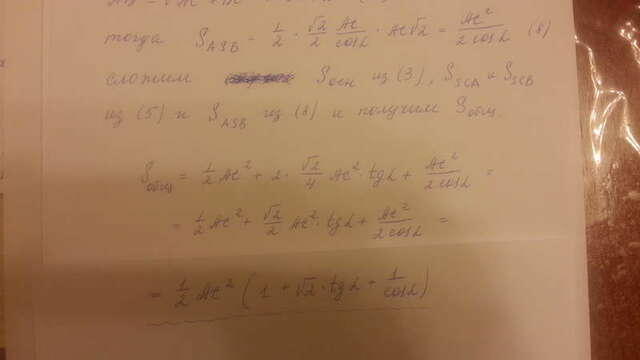 тогда S_ASB = 1/2 · √2/2 AC/cosα · AC√2 = AC²/2cosα (8)
сложим S_осн из (3), S_SCA и S_SCB
из (5) и S_ASB из (8) и получим S_общ.
S_общ = 1/2 AC² + 2 · √2/4 AC² · tgα + AC²/2cosα =
= 1/2 AC² + √2/2 AC² · tgα + AC²/2cosα =
= 1/2 AC² (1 + √2 · tgα + 1/cosα)